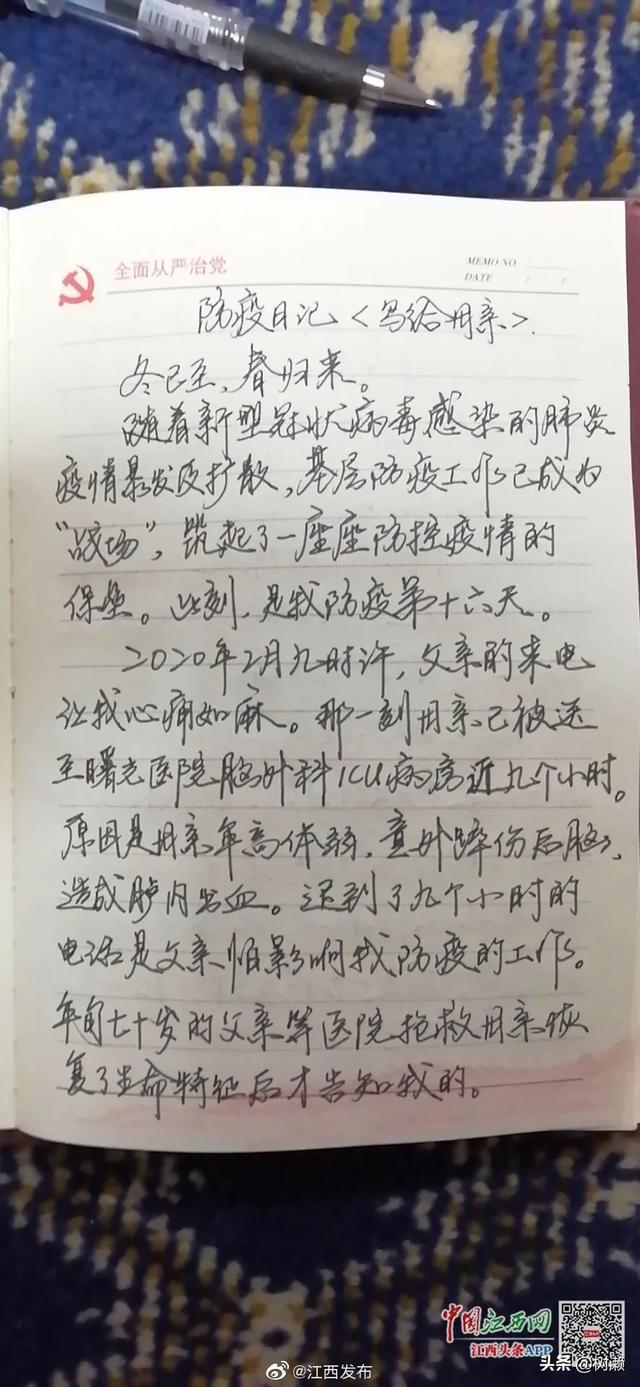 全面从严治党
MEMO NO.
DATE / /
防疫日记<写给母亲>.
冬已至，春归来。
随着新型冠状病毒感染的肺炎
疫情暴发及扩散，基层防疫工作已成为
“战场”，筑起了一座座防控疫情的
保垒。此刻，是我防疫第十六天。
2020年2月九时许，父亲的来电
让我心痛如麻。那一刻母亲已被送
至曙光医院脑外科ICU病房近九个小时。
原因是母亲年高体弱，意外跌伤后脑，
造成胪内出血。迟到了九个小时的
电话是父亲怕影响我防疫的工作。
年旬七十岁的父亲等医院抢救母亲恢
复了生命特征后才告知我的。
中国江西网
江西头条APP
@江西发布
头条 @树懒